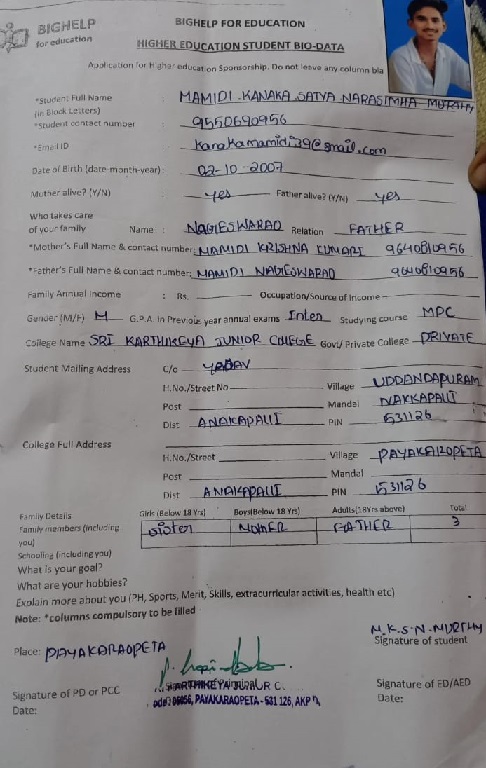 BIGHELP
for education
BIGHELP FOR EDUCATION
HIGHER EDUCATION STUDENT BIO-DATA
Application for Higher education Sponsorship. Do not leave any column bla
*Student Full Name : MAMIDI KANAKA SATYA NARASIMHA MURTHY
(in Block Letters)
*Student contact number : 9550690956
*Email ID : kanakamamidi39@gmail.com
Date of Birth (date-month-year): 02-10-2007
Mother alive? (Y/N) yes Father alive? (Y/N) yes
Who takes care
of your family Name : NAGESWARAO Relation FATHER
*Mother's Full Name & contact number: MAMIDI KRISHNA KUMARI 9640810956
*Father's Full Name & contact number: MAMIDI NAGESWARAO 9640810956
Family Annual Income : Rs. Occupation/Source of Income
Gender (M/F) M G.P.A. in Previous year annual exams Inter Studying course MPC
College Name SRI KARTHIKEYA JUNIOR COLLEGE Govt/ Private College PRIVATE
Student Mailing Address C/o YADAV
H.No./Street No Village UDDANDAPURAM
Post Mandal NAKKAPALLI
Dist ANAKAPALLI PIN 531126
College Full Address
H.No./Street Village PAYAKARAOPETA
Post Mandal
Dist ANAKAPALLI PIN 531126
Family Details Girls (Below 18 Yrs) Boys(Below 18 Yrs) Adults(18Yrs above) Total
Family members (including you) sister MOTHER FATHER 3
Schooling (including you)
What is your goal?
What are your hobbies?
Explain more about you (PH, Sports, Merit, Skills, extracurricular activities, health etc)
Note: *columns compulsory to be filled
M.K.S.N.MURTHY
Place: PAYAKARAOPETA Signature of student
Signature of PD or PCC Signature of ED/AED
PAYAKARAOPETA - 531 126, AKP
Date: Date: